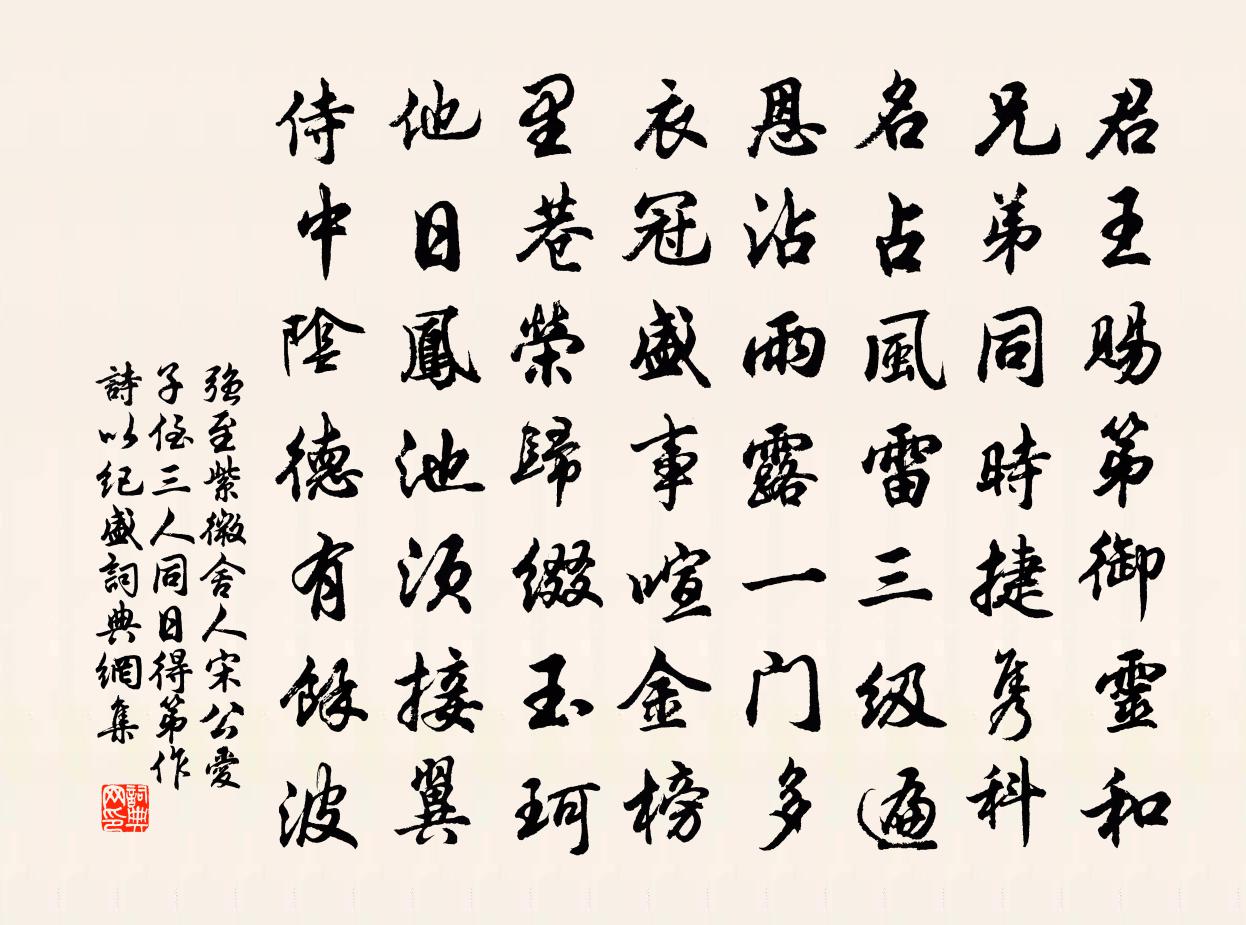 君王賜第御靈和
兄弟同時捷隽科
名占風雷三级遍
恩沾雨露一门多
衣冠盛事喧金榜
里巷榮歸綴玉珂
他日鳳池須接翼
侍中陰德有餘波
強至紫微舍人宋公愛
子侄三人同日得第作
詩以纪盛詞典網集
詞典网印